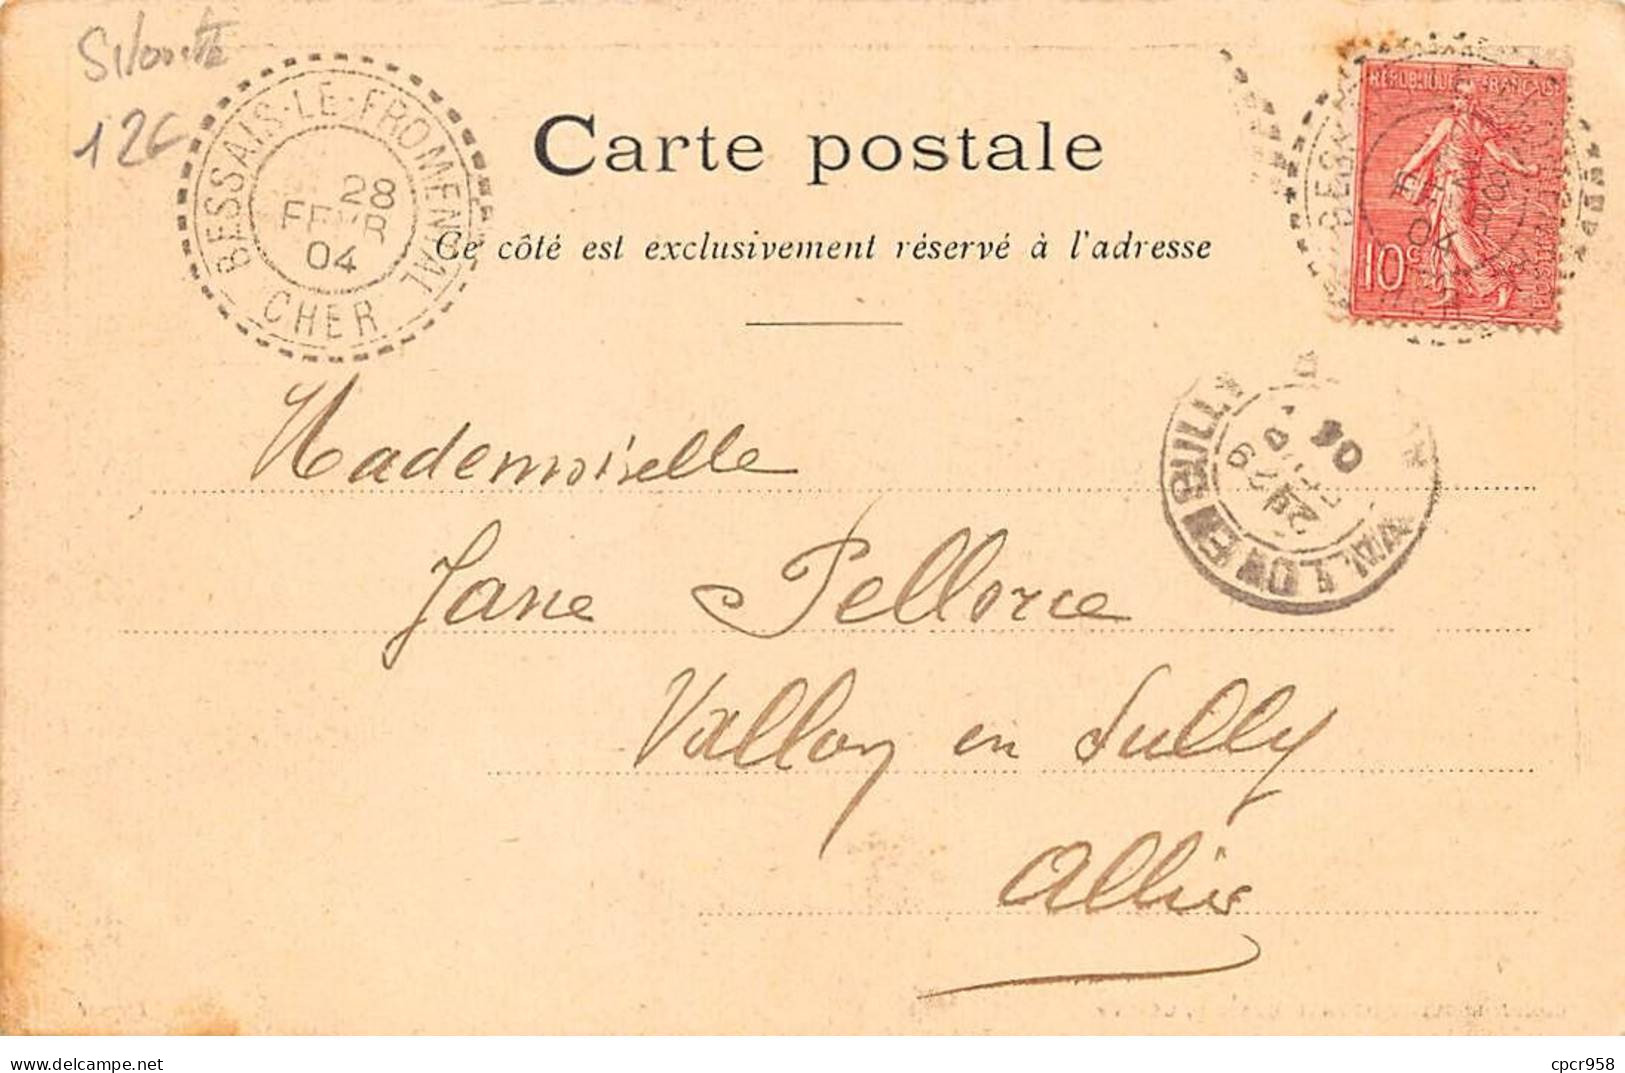 12€
BESSAIS-LE-FROMENTAL
28
FEVR
04
CHER
Carte postale
Ce côté est exclusivement réservé à l'adresse
REPUBLIQUE FRANÇAISE
10c
04
BUILLY
04
Mademoiselle
Jane Pellorce
Vallon en Sully
Allier
cpcr958